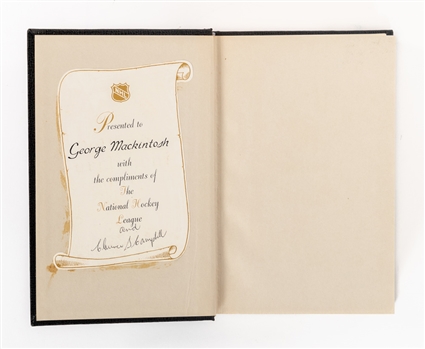 NHL
Presented to
George Mackintosh
with
the compliments of
The
National Hockey
League
and
Clarence S. Campbell